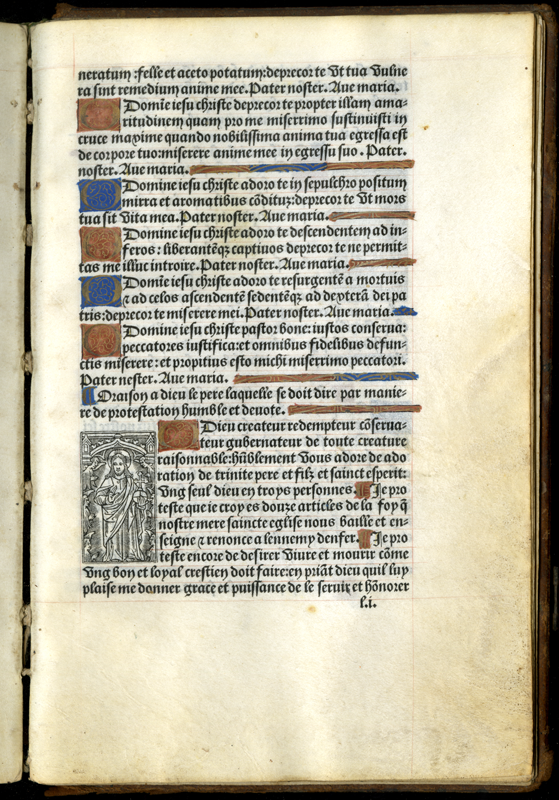 neratum:felle et aceto potatum:deprecor te Ut tua Vulne
ra sint remedium anime mee. Pater noster. Aue maria.
O Domīe iesu christe deprecor te propter illam ama-
ritudinem quam pro me miserrimo sustinuisti in
cruce maxime quando nobilissima anima tua egressa est
de corpore tuo:miserere anime mee in egressu suo. Pater.
noster. Aue maria.
O Domine iesu christe adoro te in sepulchro positum
mirra et aromatibus cōditūz:deprecor te Ut mors
tua sit Vita mea. Pater noster. Aue maria.
O Domine iesu christe adoro te descendentem ad in-
feros: liberantēqz captiuos deprecor te ne permit-
tas me illuc introire. Pater noster. Aue maria.
O Domīe iesu christe adoro te resurgentē a mortuis
⁊ ad celos ascendentē sedentēqz ad dexterā dei pa
tris:deprecor te miserere mei. Pater noster. Aue maria.
O Domine iesu christe pastor bone: iustos conserua:
peccatores iustifica:et omnibus fidelibus defun-
ctis miserere: et propitius esto michi miserrimo peccatori.
Pater noster. Aue maria.
Oraison a dieu le pere laquelle se doit dire par manie-
re de protestation humble et deuote.
O Dieu createur redempteur cōserua-
teur gubernateur de toute creature
raisonnable:hūblement Vous adore de ado
ration de trinite pere et filz et sainct esperit:
Ung seul dieu en troys personnes. Je pro
teste que ie croy es douze articles de la foy q̄
nostre mere saincte eglise nous baille et en-
seigne ⁊ renonce a lennemy denfer. Je pro
teste encore de desirer Viure et mourir cōme
Ung bon et loyal crestien doit faire:en priāt dieu quil luy
plaise me donner grace et puissance de le seruir et hōnorer
l.i.